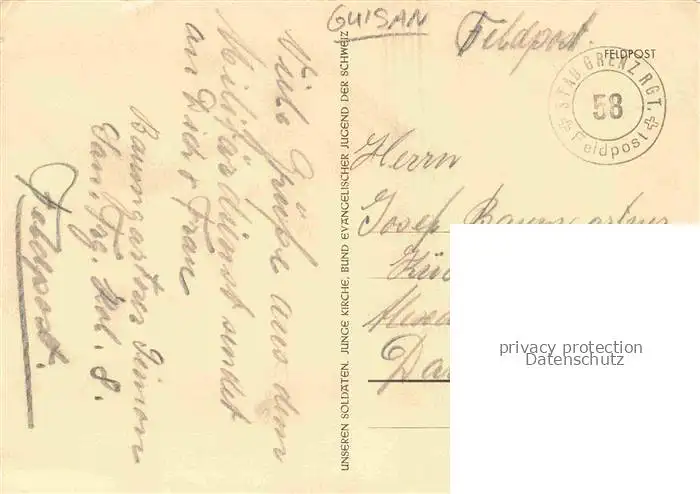 GUISAN
Feldpost.
FELDPOST
STAB GRENZ RGT.
58
Feldpost
Viele Grüße aus dem
Militärdienst sendet
an Dich & Frau
Baumgartner Simon
San. Trg. Kol. 8.
Feldpost.
UNSEREN SOLDATEN. JUNGE KIRCHE, BUND EVANGELISCHER JUGEND DER SCHWEIZ
Herrn
Josef Baumgartner
privacy protection
Datenschutz